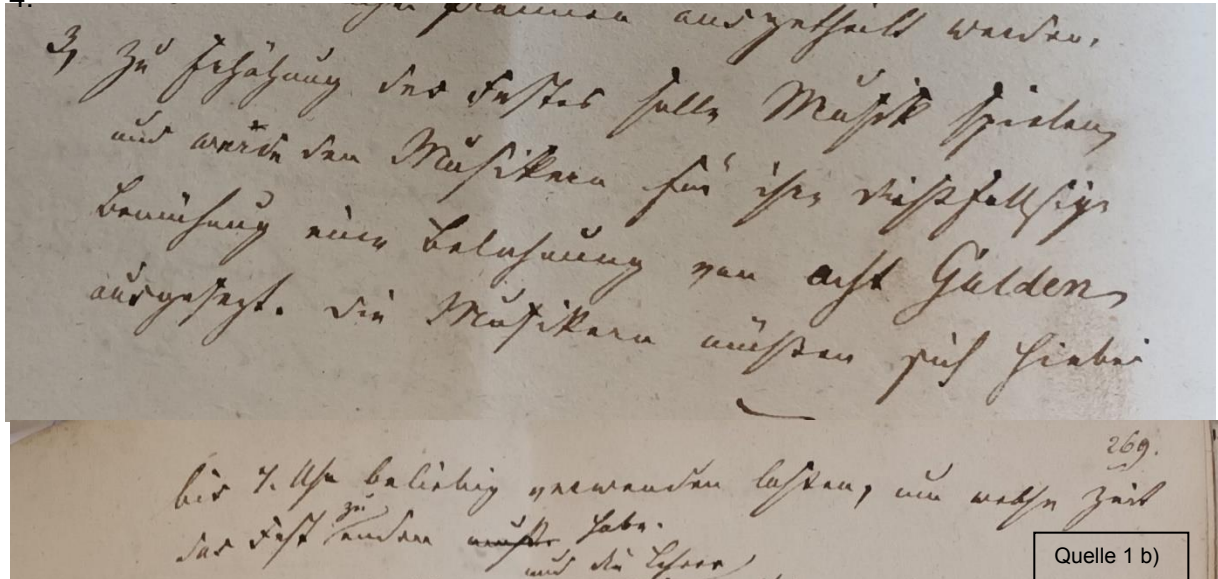 4.
ausgetheilt werden.
3, Zu Erhöhung des Festes solle Musik spielen,
und werde den Musikern für ihre dießfallsige
Bemühung eine Belohnung von acht Gulden
ausgesezt. Die Musikern müßten sich hiebei
269.
bis 7. Uhr beliebig verwenden laßen, um welche Zeit
das Fest zu enden müßte habe.
und die Lehrer
Quelle 1 b)